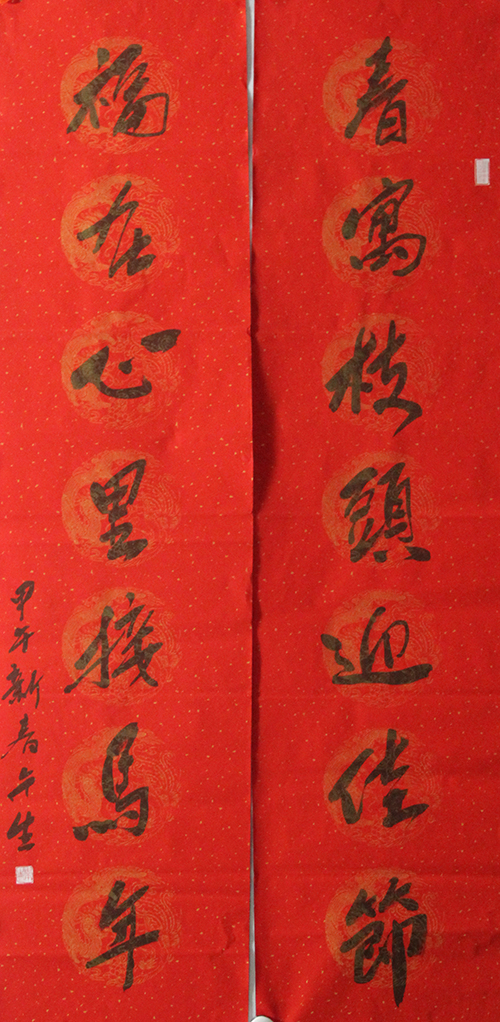 春寓枝頭迎佳節
福在心里接馬年
甲午新春午生